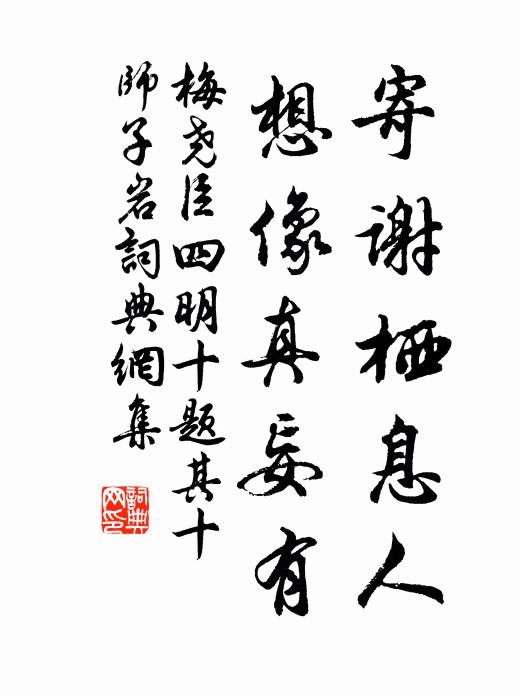 寄谢栖息人
想像真妄有
梅尧臣四明十题其十
师子岩詞典網集
詞典网印